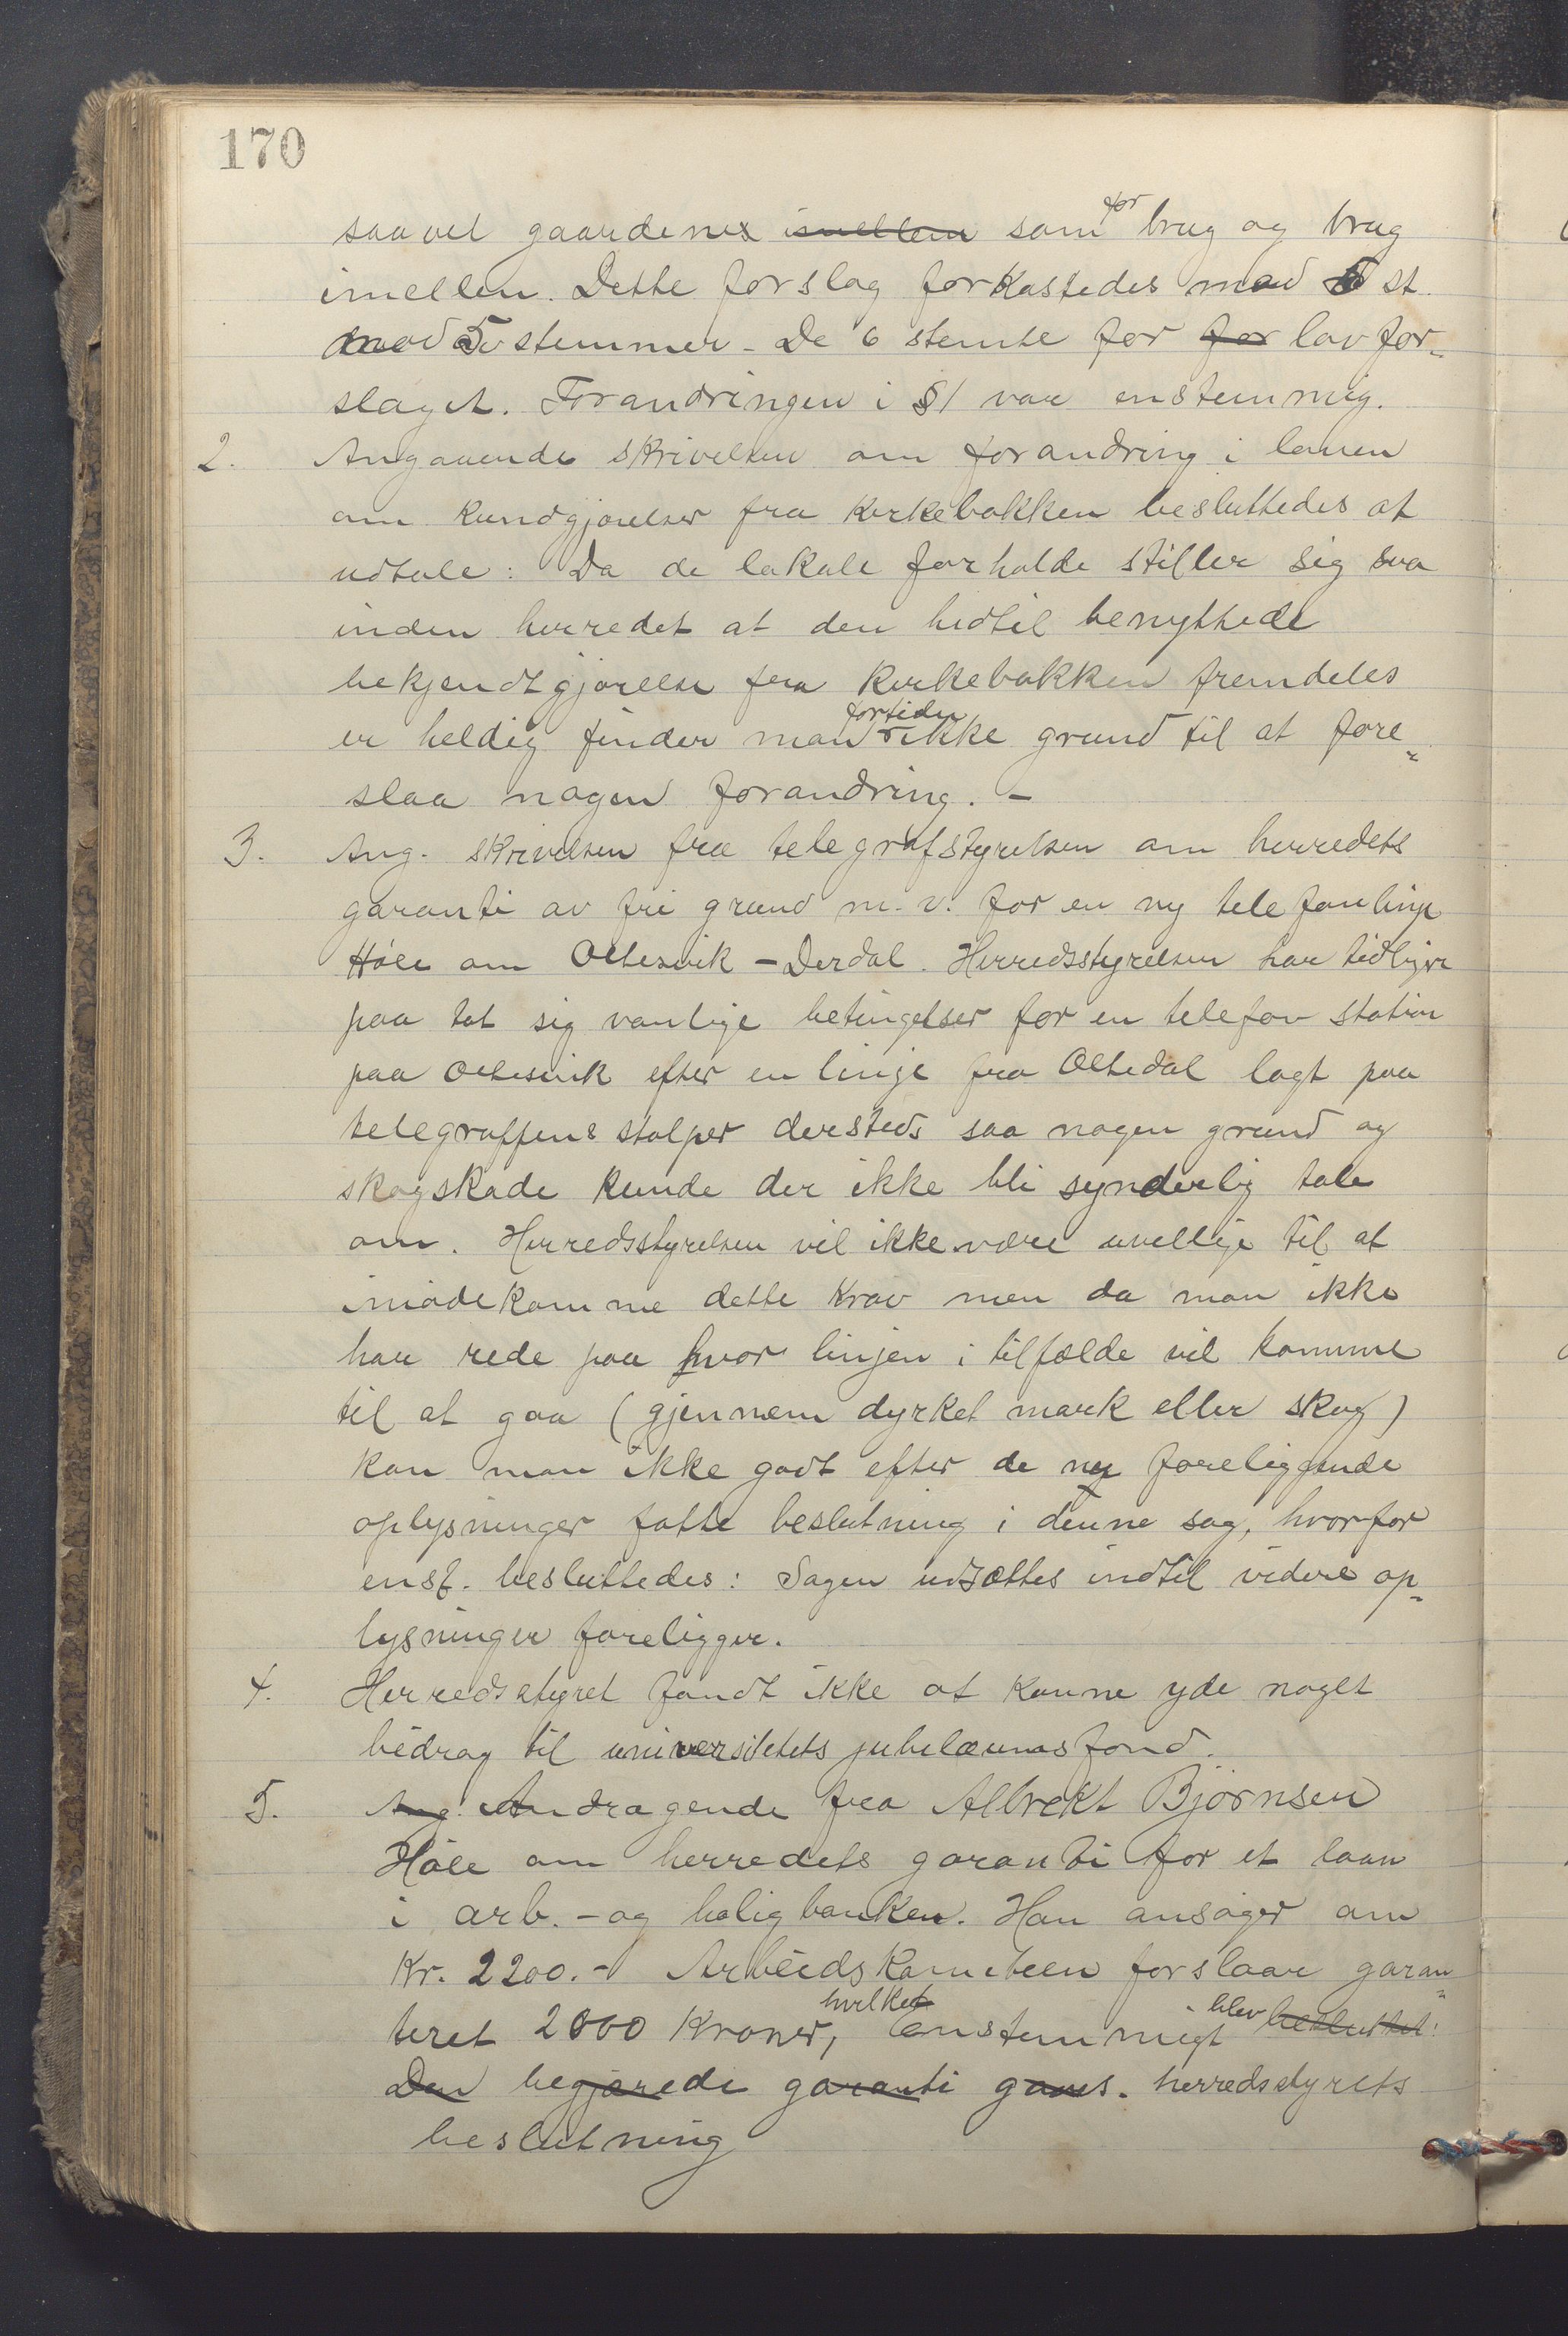 170
saavel gaardenes imellem som for brug og brug
imellem. Dette forslag forkastedes med 6 st.
mod 5 stemmer - De 6 stemte for for lovfor-
slaget. Forandringen i §1 var enstemmig.
2. Angaaende skrivelsen om forandring i loven
om kundgjørelser fra kirkebakken besluttedes at
udtale: Da de lokale forholde stiller sig saa
inden herredet at den hidtil benyttede
bekjendtgjørelse fra kirkebakken fremdeles
er heldig finder man fortiden ikke grund til at fore-
slaa nogen forandring. -
3. Ang. skrivelsen fra telegrafstyrelsen om herredets
garanti av fri grund m.v. for en ny telefonlinje
Høle om Oltesvik - Dirdal. Herredsstyrelsen har tidligere
paa tat sig vanlige betingelser for en telefon station
paa Oltesvik efter en linje fra Oltedal lagt paa
telegraffens stolper dersteds saa nogen grund og
skogskade kunde der ikke bli synderlig tale
om. Herredsstyrelsen vil ikke være uvillige til at
imødekomme dette krav men da man ikke
har rede paa hvor linjen i tilfælde vil komme
til at gaa (gjennem dyrket mark eller skog)
kan man ikke godt efter de ny foreliggende
oplysninger fatte beslutning i denne sag, hvorfor
enst. besluttedes: Sagen udsættes indtil videre op-
lysninger foreligger.
4. Herredsstyret fandt ikke at kunne yde noget
bidrag til universitetets jubelæumsfond.
5. Ang. Andragende fra Albrekt Bjørnsen
Høle om herredets garanti for et laan
i arb.- og boligbanken. Han ansøger om
Kr. 2200.- Arbeidskomiteen forslaar garan-
teret 2000 Kroner, hvilket Enstemmigt blev besluttet:
Den begjærede garanti gaves. herredsstyrets
beslutning